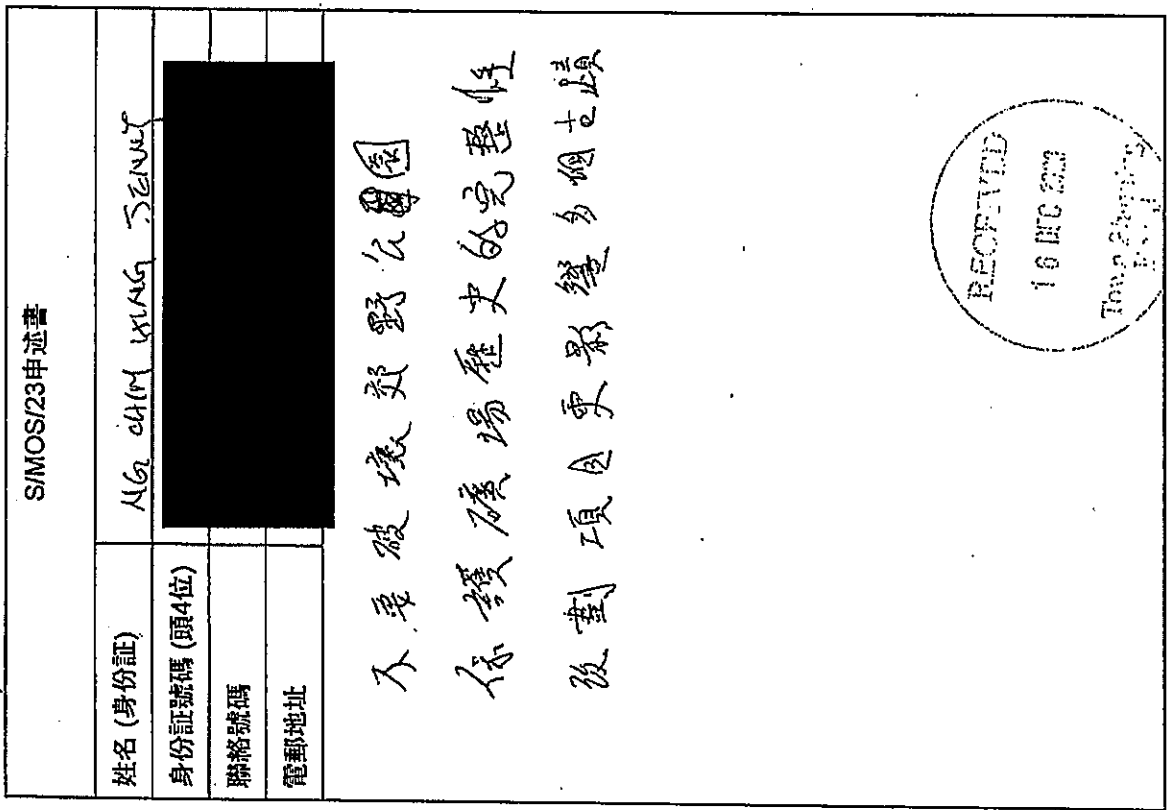 S/MOS/23申述書
姓名 (身份証) NG CHIM XING JENNY
身份証號碼 (頭4位)
聯絡號碼
電郵地址
不要破壞郊野公園
保護礦場歷史的完整性
改劃項目更影響多個古蹟
RECEIVED
16 DEC 2020
Town Planning
Board